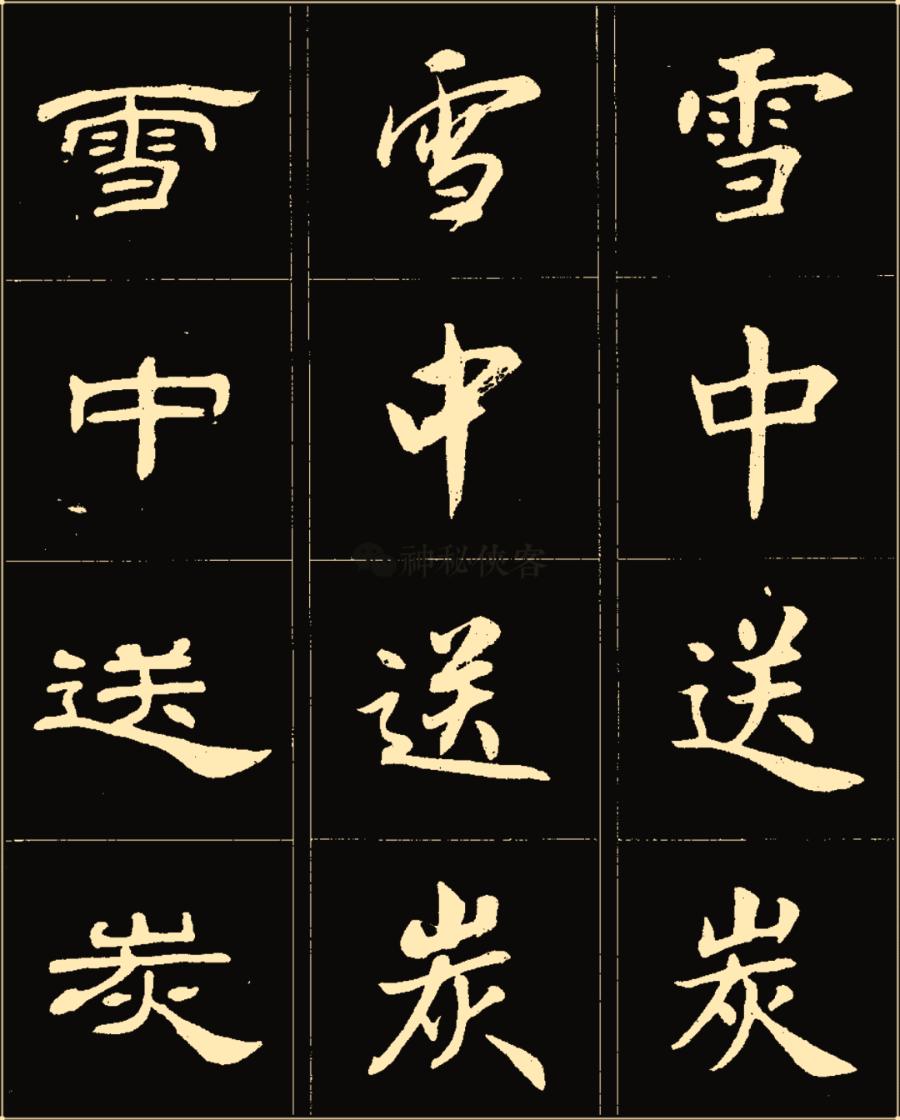 雪中送炭
雪中送炭
雪中送炭
神秘侠客